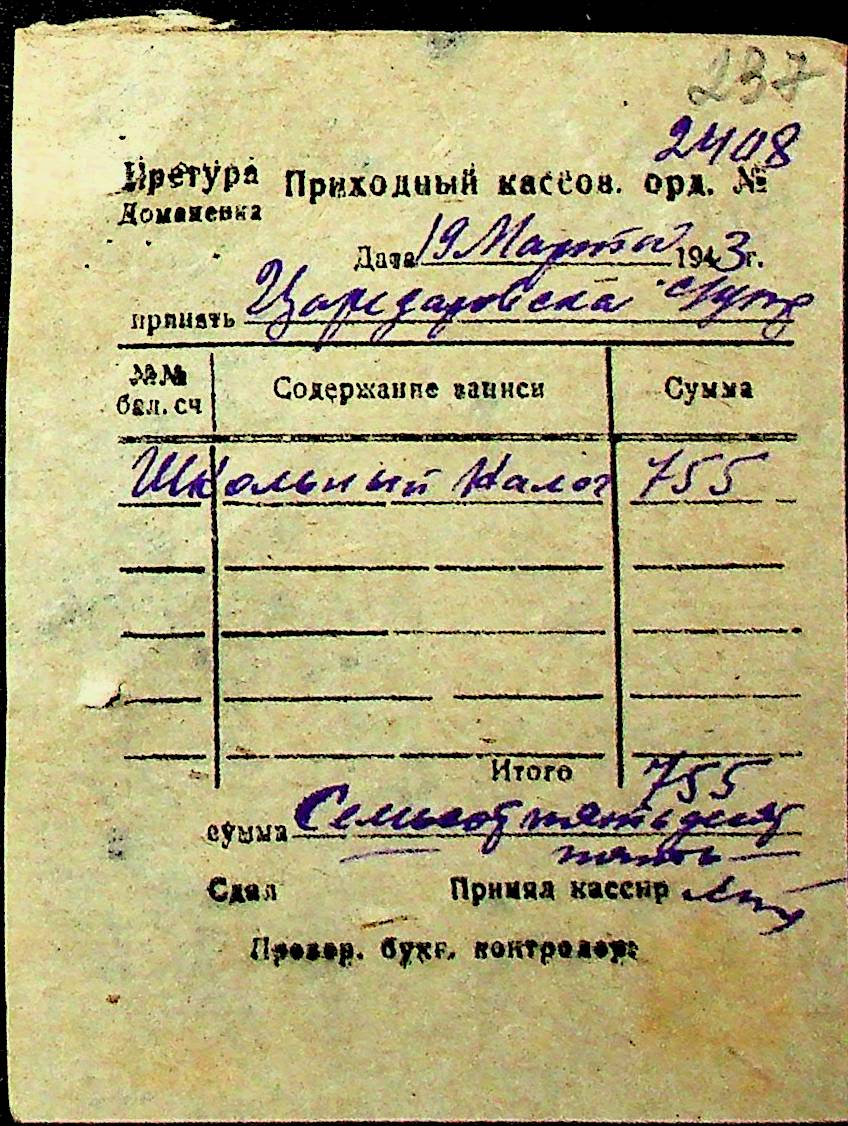 237
2408
Претура Приходный кассов. орд. №
Доманевка
Дата 19 Марта 1943 г.
принять
№№ бал. сч Содержание записи Сумма
Школьный Налог 755
Итого 755
сумма Семьсот пятьдесят
пять
Сдал Принял кассир
Провер. бухг. контролер: